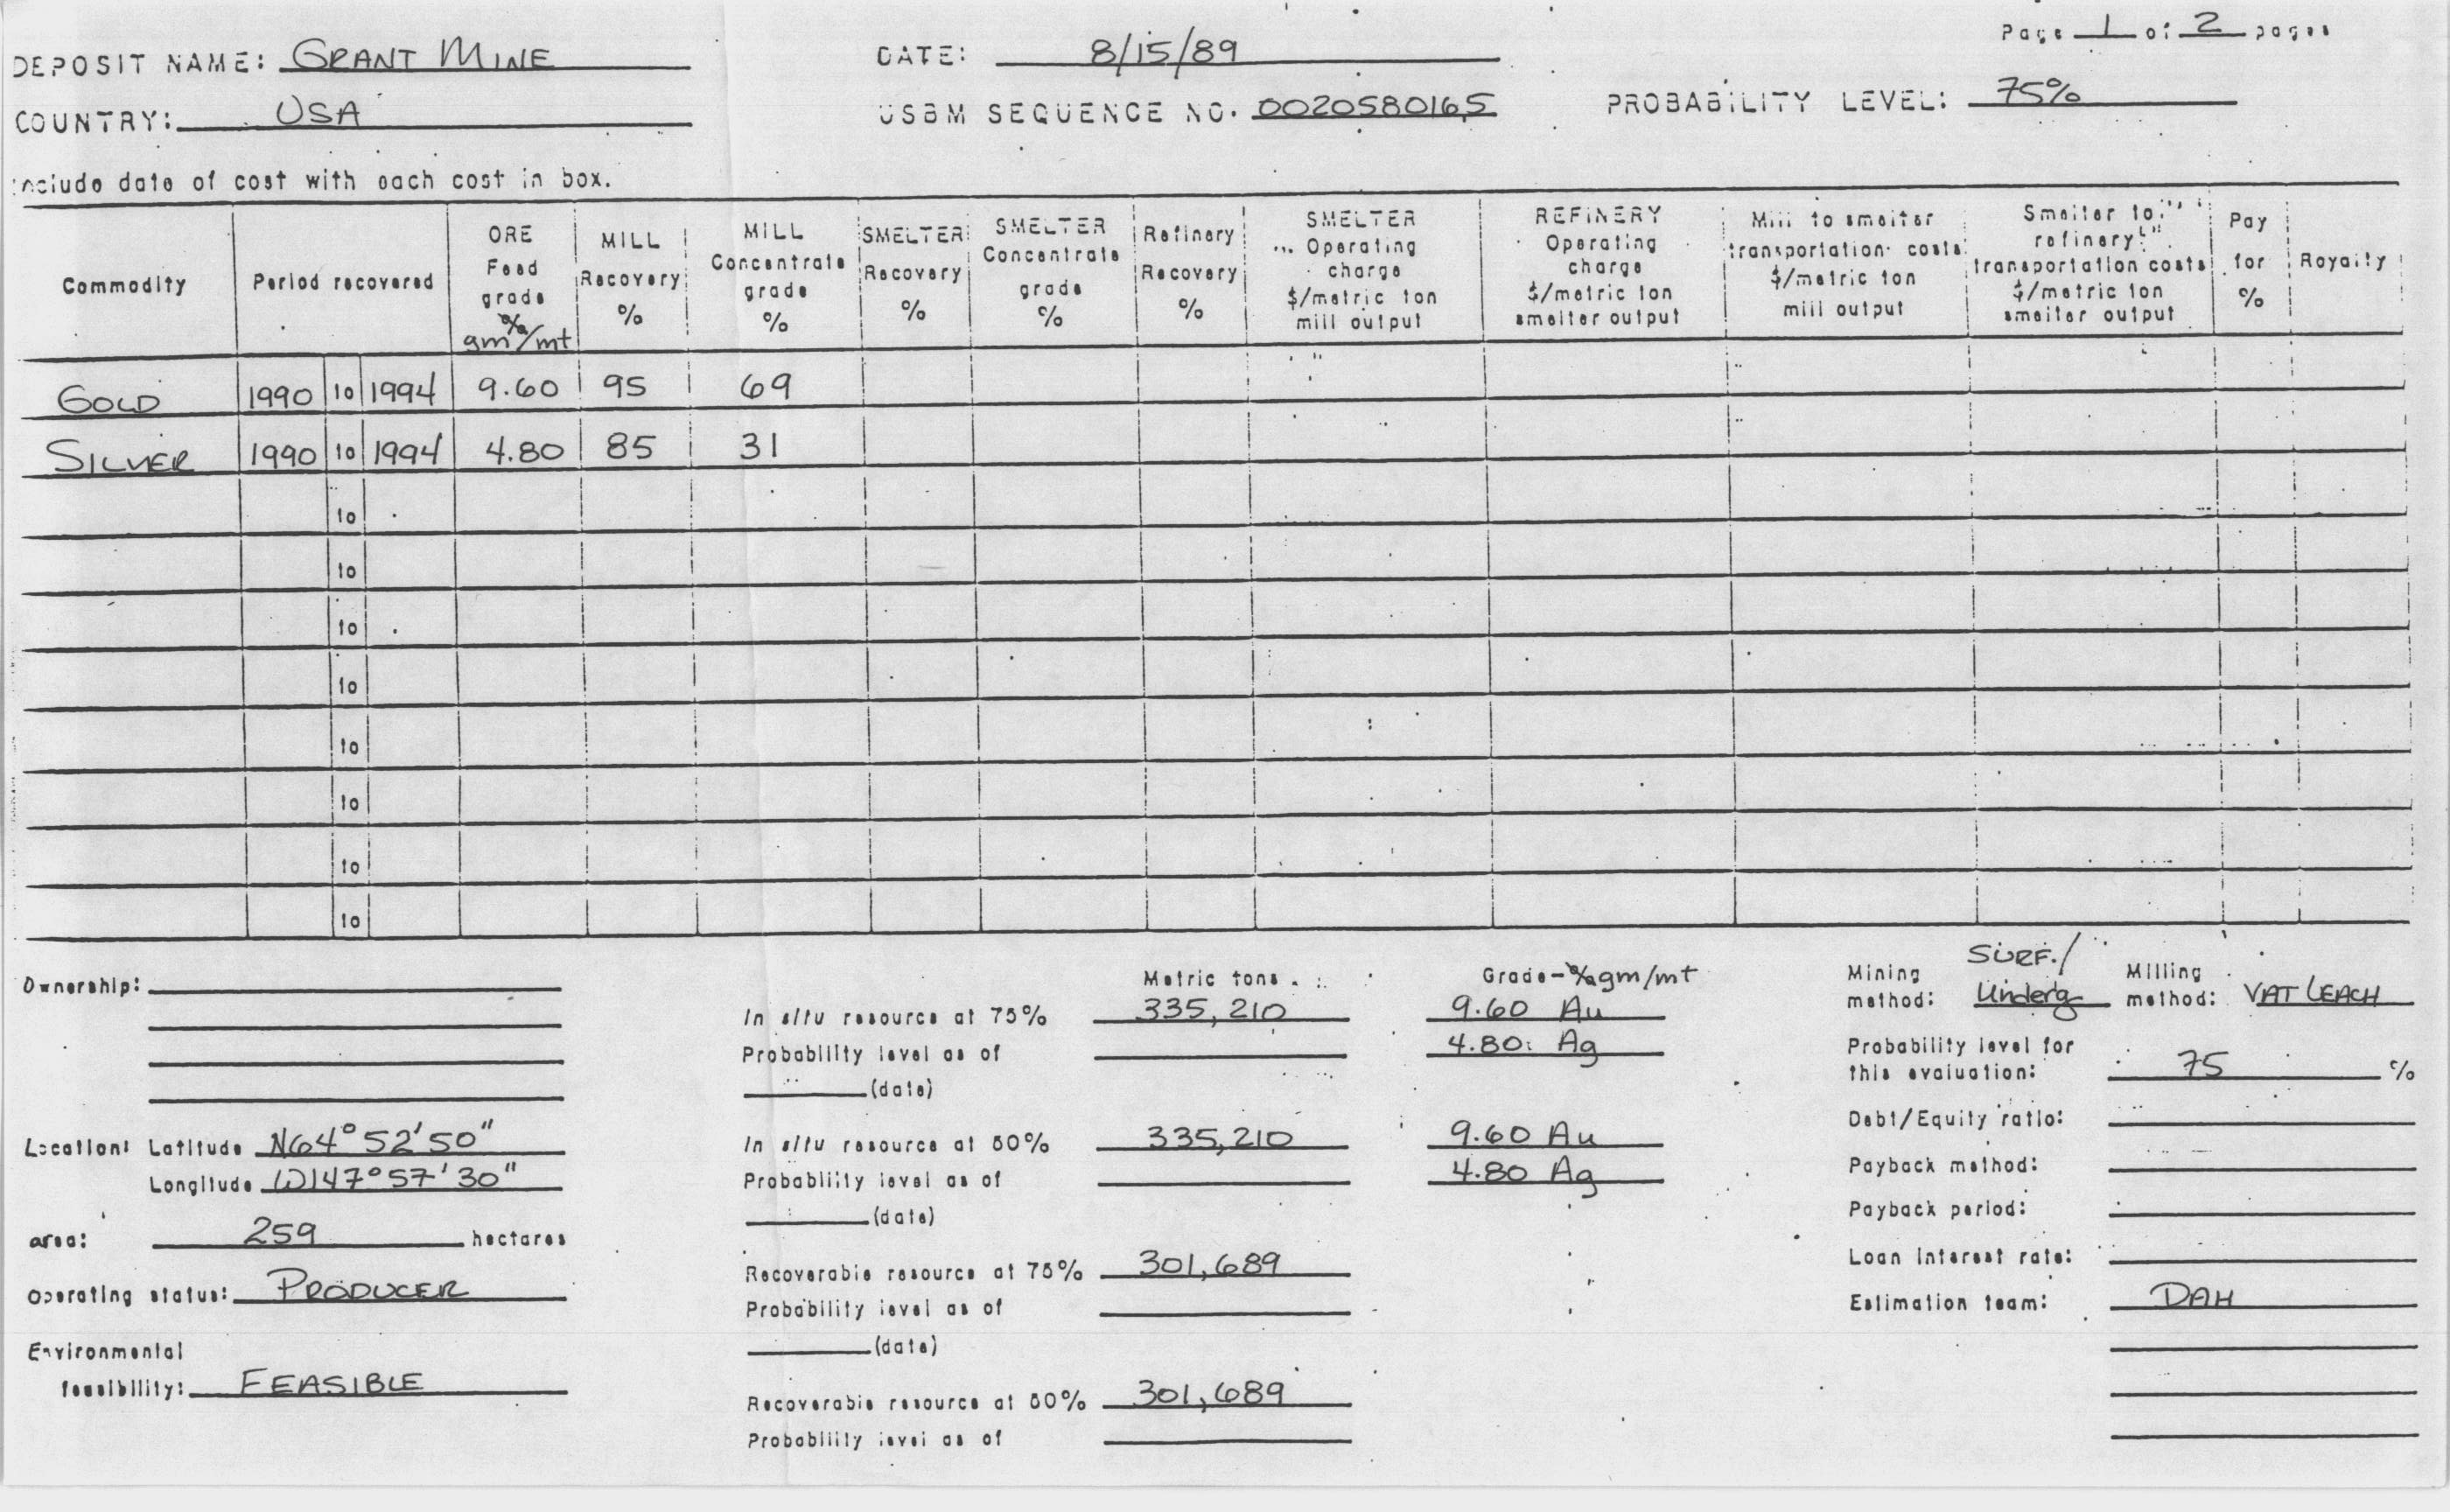 Page 1 of 2 pages
DEPOSIT NAME: GRANT MINE DATE: 8/15/89
COUNTRY: USA USBM SEQUENCE NO. 0020580165 PROBABILITY LEVEL: 75%
Include date of cost with each cost in box.
Commodity
Period recovered
ORE
Feed
grade
%
gm/mt
MILL
Recovery
%
MILL
Concentrate
grade
%
SMELTER
Recovery
%
SMELTER
Concentrate
grade
%
Refinery
Recovery
%
SMELTER
Operating
charge
$/metric ton
mill output
REFINERY
Operating
charge
$/metric ton
smelter output
Mill to smelter
transportation costs
$/metric ton
mill output
Smelter to
refinery
transportation costs
$/metric ton
smelter output
Pay
for
%
Royalty
GOLD 1990 to 1994 9.60 95 69
SILVER 1990 to 1994 4.80 85 31
to
to
to
to
to
to
to
to
Ownership:
Location: Latitude N64°52'50"
Longitude W147°57'30"
area: 259 hectares
Operating status: PRODUCER
Environmental
feasibility: FEASIBLE
Metric tons Grade-% gm/mt
In situ resource at 75% 335,210 9.60 Au
Probability level as of 4.80 Ag
(date)
In situ resource at 50% 335,210 9.60 Au
Probability level as of 4.80 Ag
(date)
Recoverable resource at 75% 301,689
Probability level as of
(date)
Recoverable resource at 50% 301,689
Probability level as of
Mining
method: SURF./
Underg
Milling
method: VAT LEACH
Probability level for
this evaluation: 75 %
Debt/Equity ratio:
Payback method:
Payback period:
Loan interest rate:
Estimation team: DAH